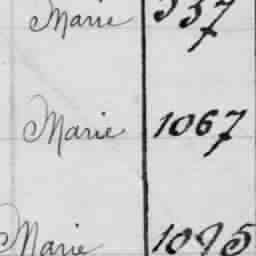 Marie 337
Marie 1067
Marie 1095